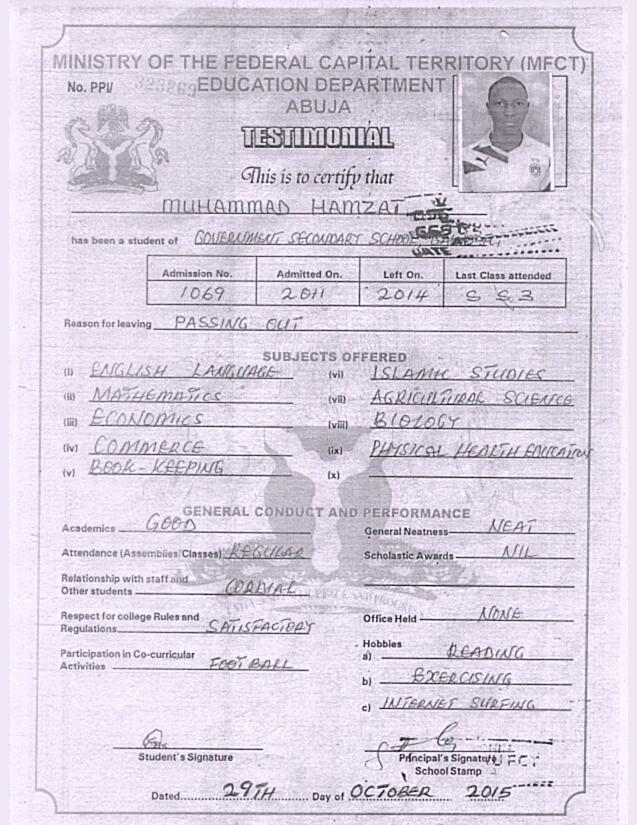 MINISTRY OF THE FEDERAL CAPITAL TERRITORY (MFCT)
No. PPI/ 323269 EDUCATION DEPARTMENT
ABUJA
TESTIMONIAL
This is to certify that
MUHAMMAD HAMZAT
has been a student of GOVERNMENT SECONDARY SCHOOL
Admission No. Admitted On. Left On. Last Class attended
1069 2011 2014 S S 3
Reason for leaving PASSING OUT
SUBJECTS OFFERED
(i) ENGLISH LANGUAGE (vi) ISLAMIC STUDIES
(ii) MATHEMATICS (vii) AGRICULTURAL SCIENCE
(iii) ECONOMICS (viii) BIOLOGY
(iv) COMMERCE (ix) PHYSICAL HEALTH EDUCATION
(v) BOOK-KEEPING (x)
GENERAL CONDUCT AND PERFORMANCE
Academics GOOD General Neatness NEAT
Attendance (Assemblies/Classes) REGULAR Scholastic Awards NIL
Relationship with staff and
Other students CORDIAL
Respect for college Rules and
Regulations SATISFACTORY Office Held NONE
Participation in Co-curricular
Activities FOOTBALL
Hobbies
a) READING
b) EXERCISING
c) INTERNET SURFING
Student's Signature Principal's Signature
School Stamp
Dated 29TH Day of OCTOBER 2015